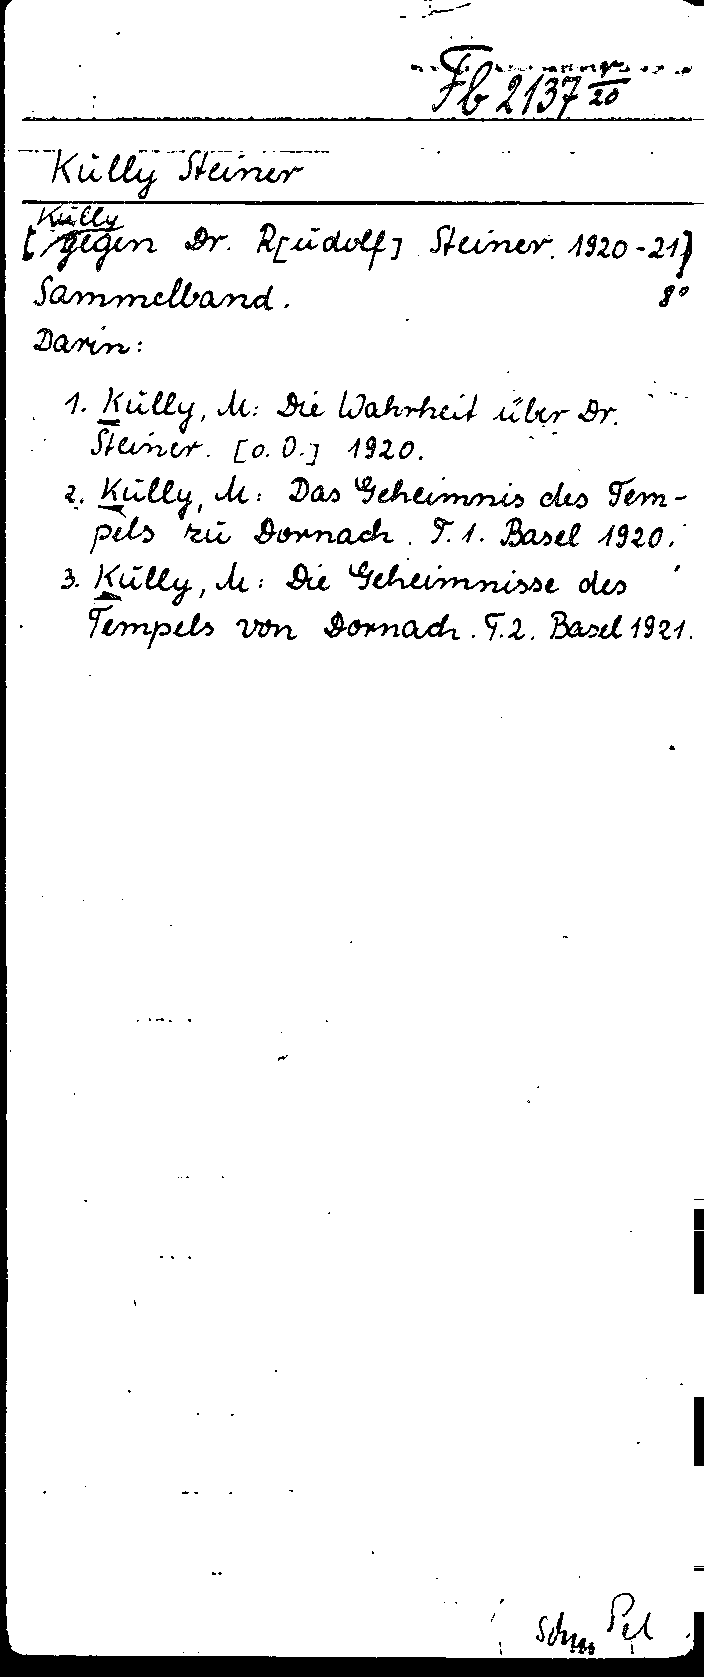 Fb 2137/20
Kully Steiner
Kully
[gegen Dr. R[udolf] Steiner. 1920-21]
Sammelband. 8°
Darin:
1. Kully, M: Die Wahrheit über Dr.
Steiner. [o. O.] 1920.
2. Kully, M: Das Geheimnis des Tem-
pels zu Dornach. T. 1. Basel 1920.
3. Kully, M: Die Geheimnisse des
Tempels von Dornach. T. 2. Basel 1921.